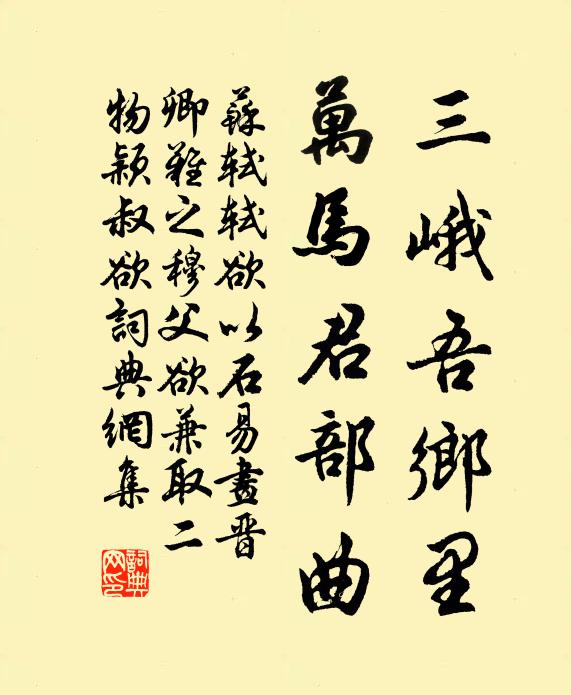 三峨吾鄉里
萬馬君部曲
蘇軾軾欲以石易畫晋
卿難之穆父欲兼取二
物穎叔欲詞典網集
詞典
网印